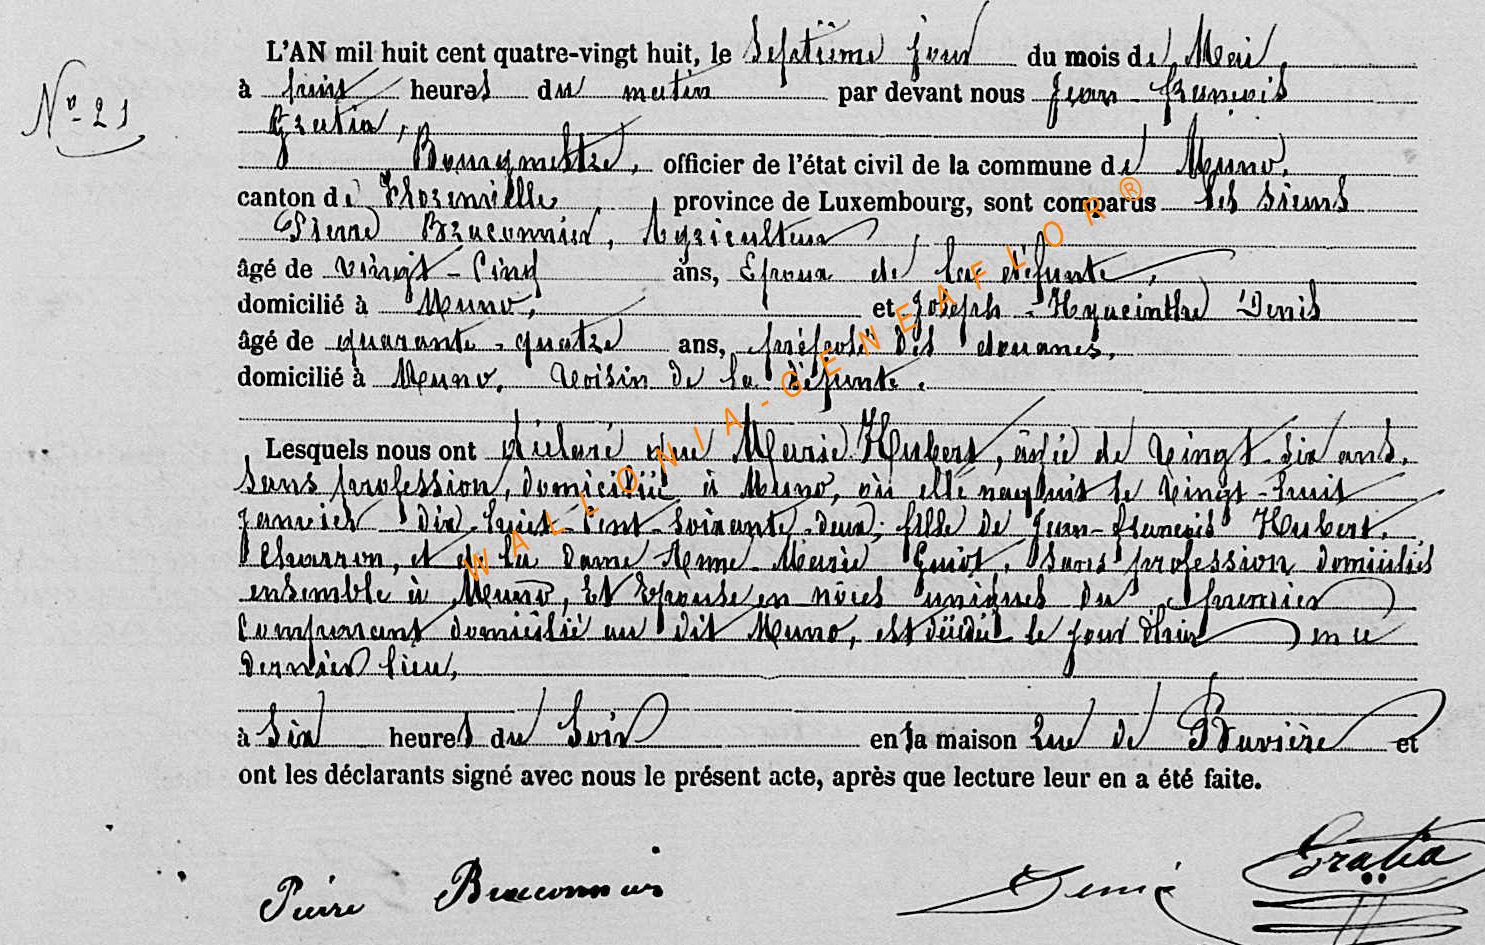 L'AN mil huit cent quatre-vingt huit, le Septième jour du mois de Mai,
N° 21
à huit heures du matin par devant nous Jean François
Gratia,
Bourgmestre, officier de l'état civil de la commune de Muno,
canton de Florenville province de Luxembourg, sont comparus les sieurs
Pierre Braconnier, Agriculteur
âgé de Vingt-Cinq ans, Epoux de la défunte,
domicilié à Muno, et Joseph-Hyacinthe Denis
âgé de quarante-quatre ans, préposé des douanes,
domicilié à Muno, Voisin de la défunte.
Lesquels nous ont déclaré que Marie Hubert, âgée de Vingt-six ans,
sans profession, domiciliée à Muno, où elle naquit le Vingt-huit
Janvier dix-huit-Cent-soixante-deux, fille de Jean-François Hubert,
Charron, et de la Dame Anne-Marie Guiot, sans profession domiciliés
ensemble à Muno, Et Epouse en nôces uniques du premier
Comparant domicilié au dit Muno, est décédée le jour d'hier en ce
dernier lieu,
à Six heures du Soir en la maison Rue de et
ont les déclarants signé avec nous le présent acte, après que lecture leur en a été faite.
Pierre Braconnier Denis Gratia
WALLONIA-GENEAFLOR®